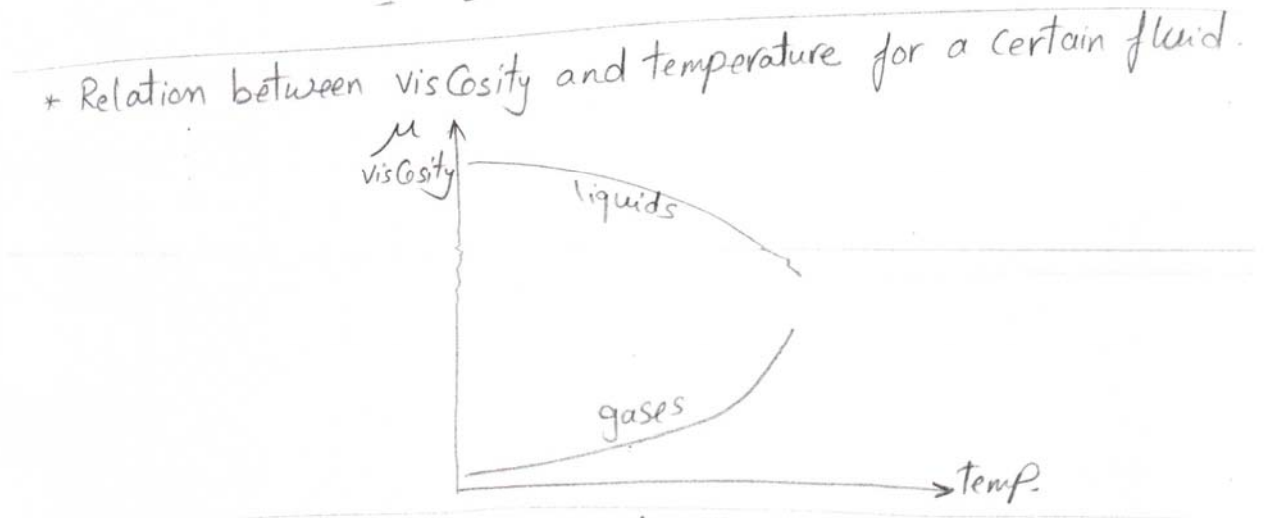 * Relation between viscosity and temperature for a certain fluid.
μ
viscosity
liquids
gases
temp.